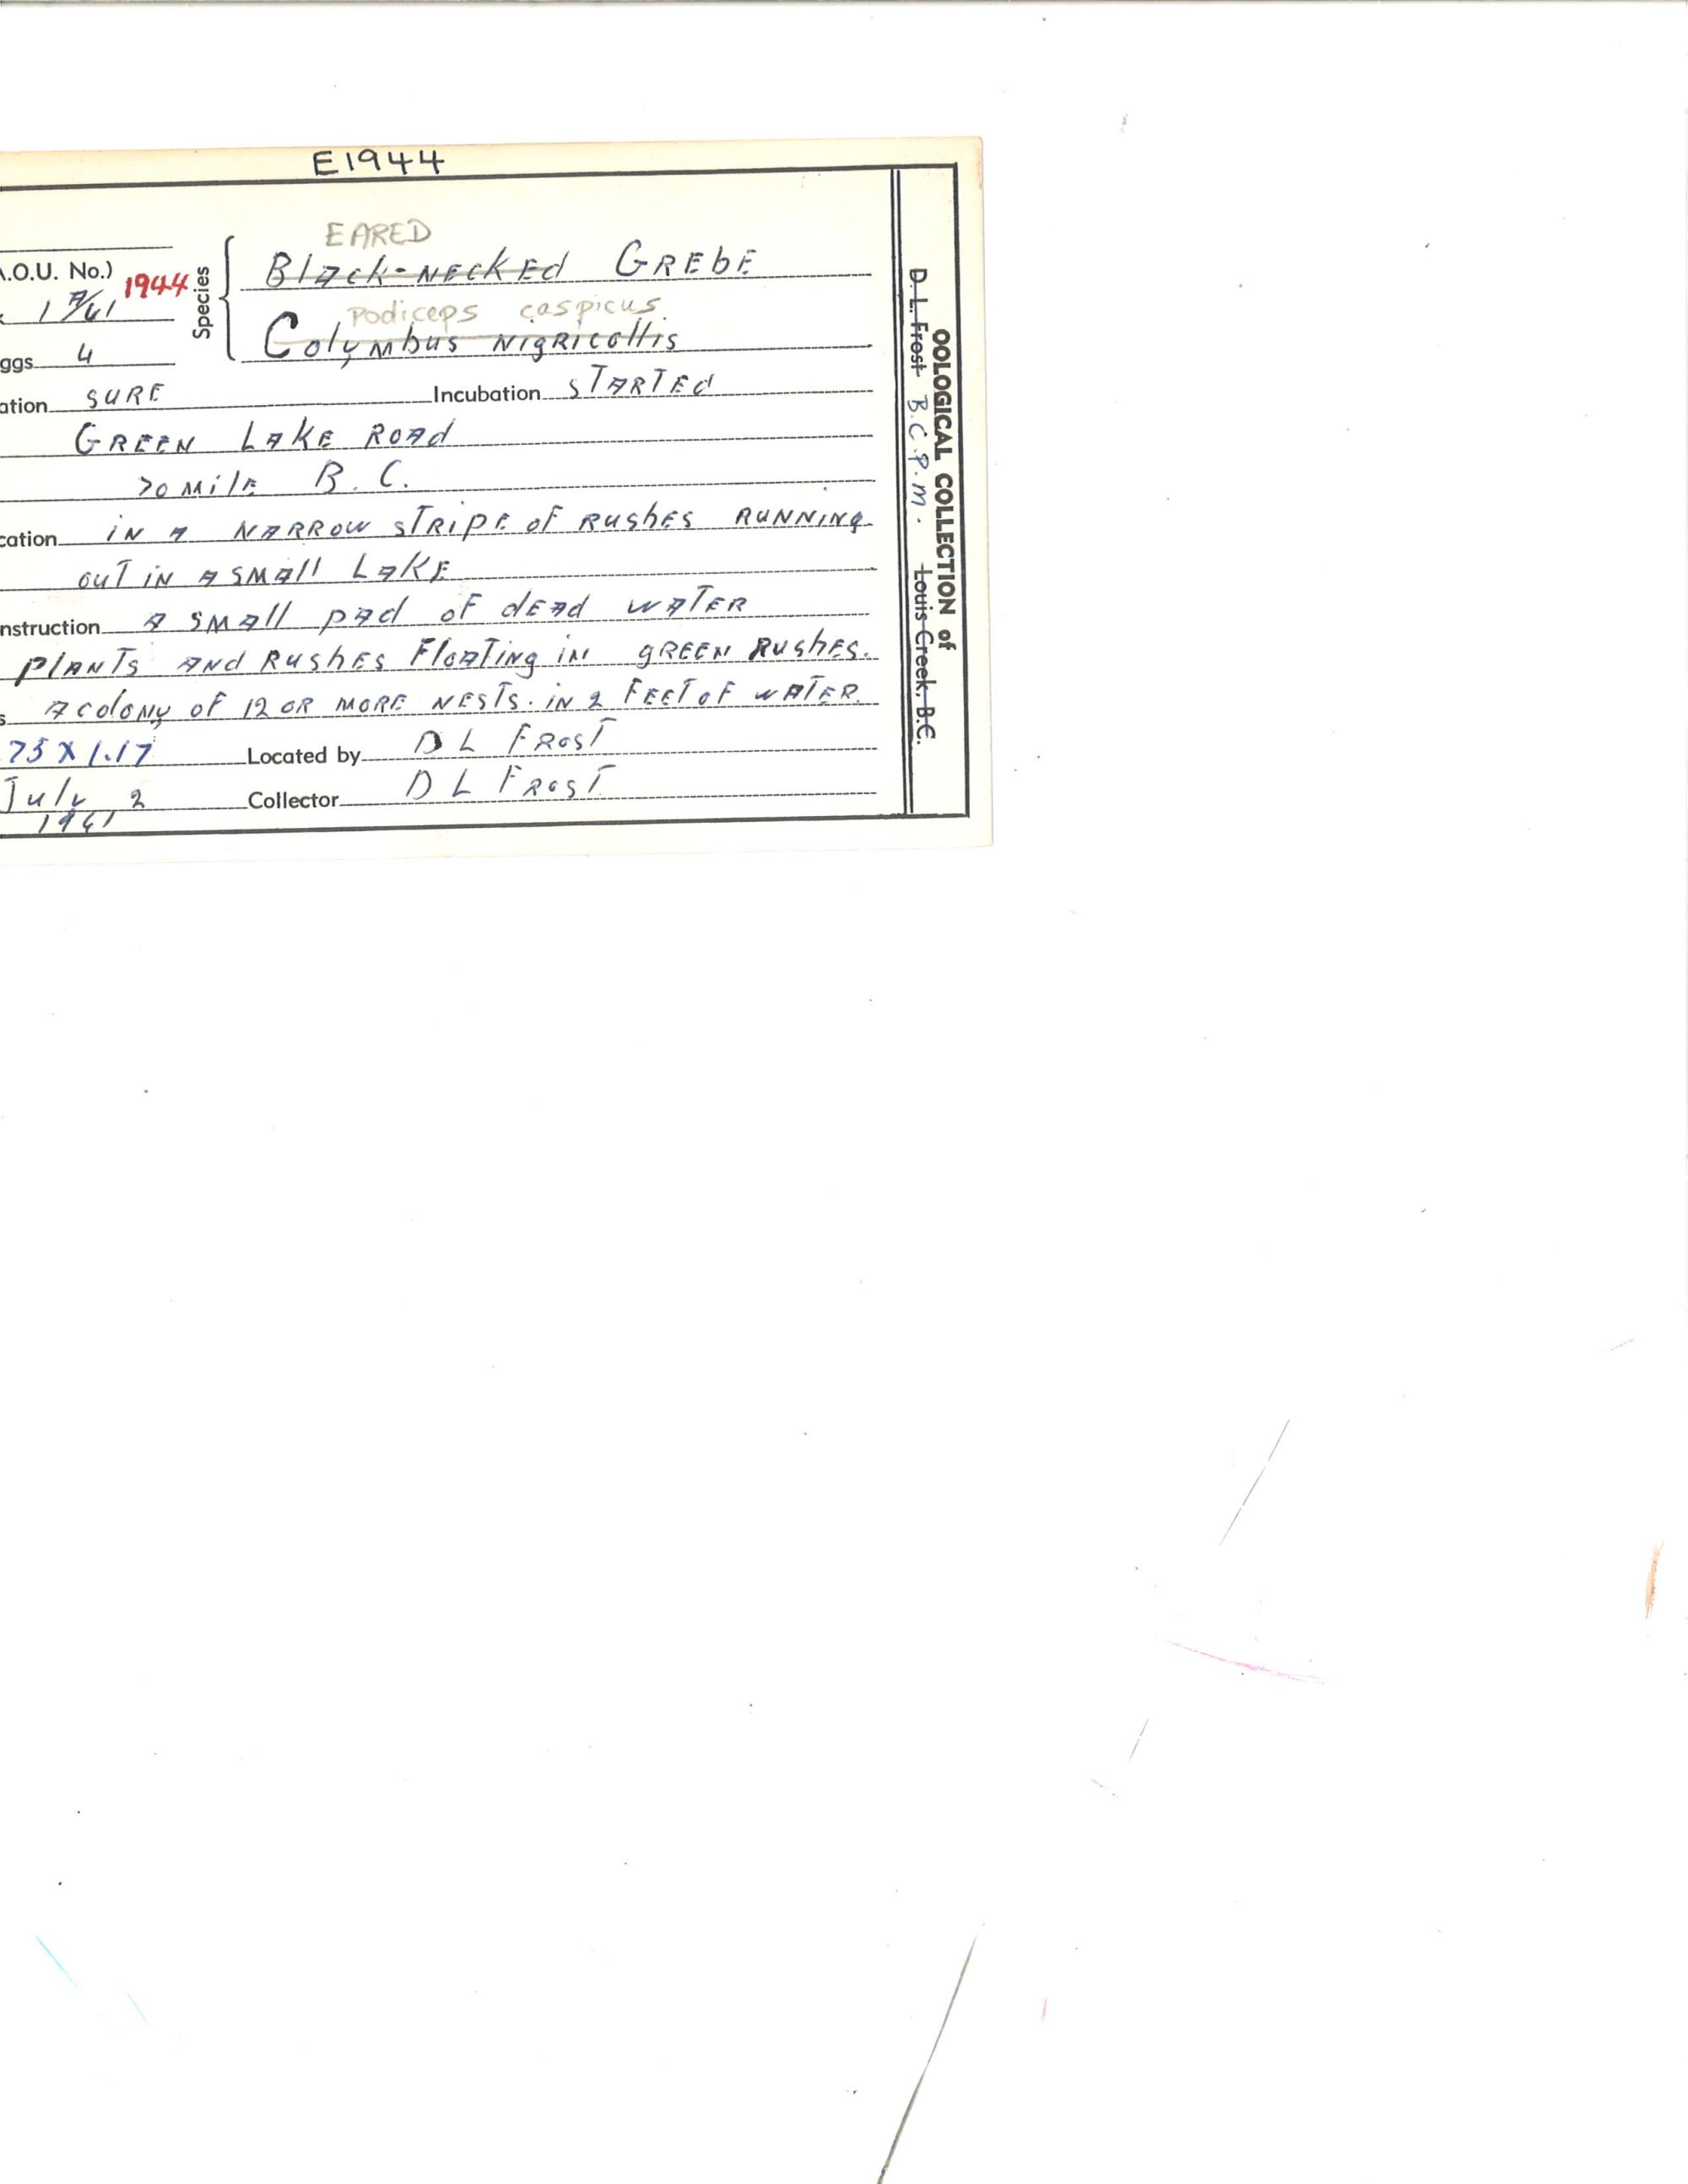 E1944
EARED
.O.U. No.) 1944 Species Black-NECKEd GREbE
Podiceps caspicus.
ggs 4 Colymbus NIGRICollis
ation SURE Incubation STARTEd
GREEN LAKE ROAd
70 MilE B. C.
cation iN A NARROW STRIPE of RushES RuNNiNg
ouT iN A SMAll LAKE
nstruction A SMAll pAd of dEAd WATER
plANTs ANd RushEs FloATiNg iN gREEN RushEs.
s A coloNy of 12 OR MORE NESTS. iN 2 FEET of WATER.
75 X 1.17 Located by D L FROST
July 2 Collector D L FROST
1961
OOLOGICAL COLLECTION of
D. L. Frost B.C.P.M. Louis Creek, B.C.